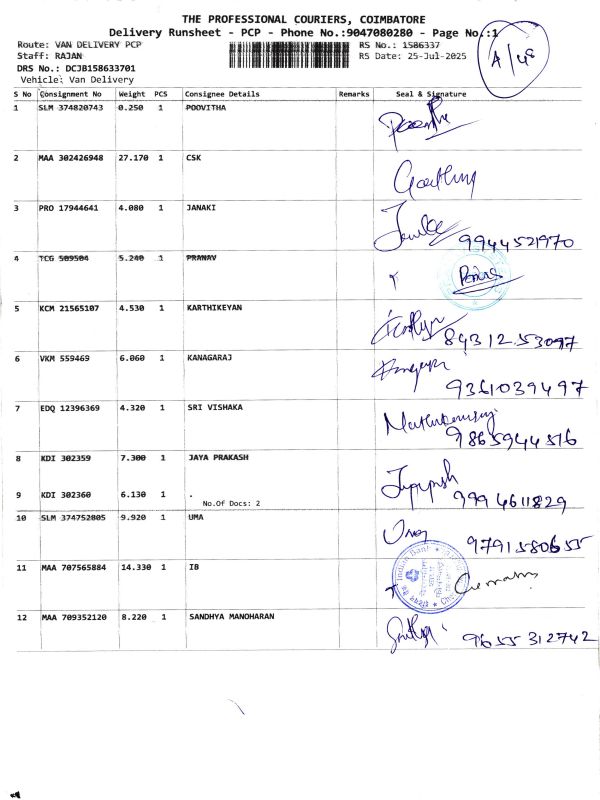 THE PROFESSIONAL COURIERS, COIMBATORE
Delivery Runsheet - PCP - Phone No.:9047080280 - Page No.:1
Route: VAN DELIVERY PCP RS No.: 1586337
Staff: RAJAN RS Date: 25-Jul-2025
DRS No.: DCJB158633701
Vehicle: Van Delivery
A/48
S No Consignment No Weight PCS Consignee Details Remarks Seal & Signature
1 SLM 374820743 0.250 1 POOVITHA
2 MAA 302426948 27.170 1 CSK
3 PRO 17944641 4.080 1 JANAKI
9944521970
4 TCG 509504 5.240 1 PRANAV
5 KCM 21565107 4.530 1 KARTHIKEYAN
84312 53097
6 VKM 559469 6.060 1 KANAGARAJ
9361039497
7 EDQ 12396369 4.320 1 SRI VISHAKA
9865944516
8 KDI 302359 7.300 1 JAYA PRAKASH
9 KDI 302360 6.130 1 .
No.Of Docs: 2
9994611829
10 SLM 374752805 9.920 1 UMA
Uma 9791580655
11 MAA 707565884 14.330 1 IB
Indian Bank
12 MAA 709352120 8.220 1 SANDHYA MANOHARAN
9655312742